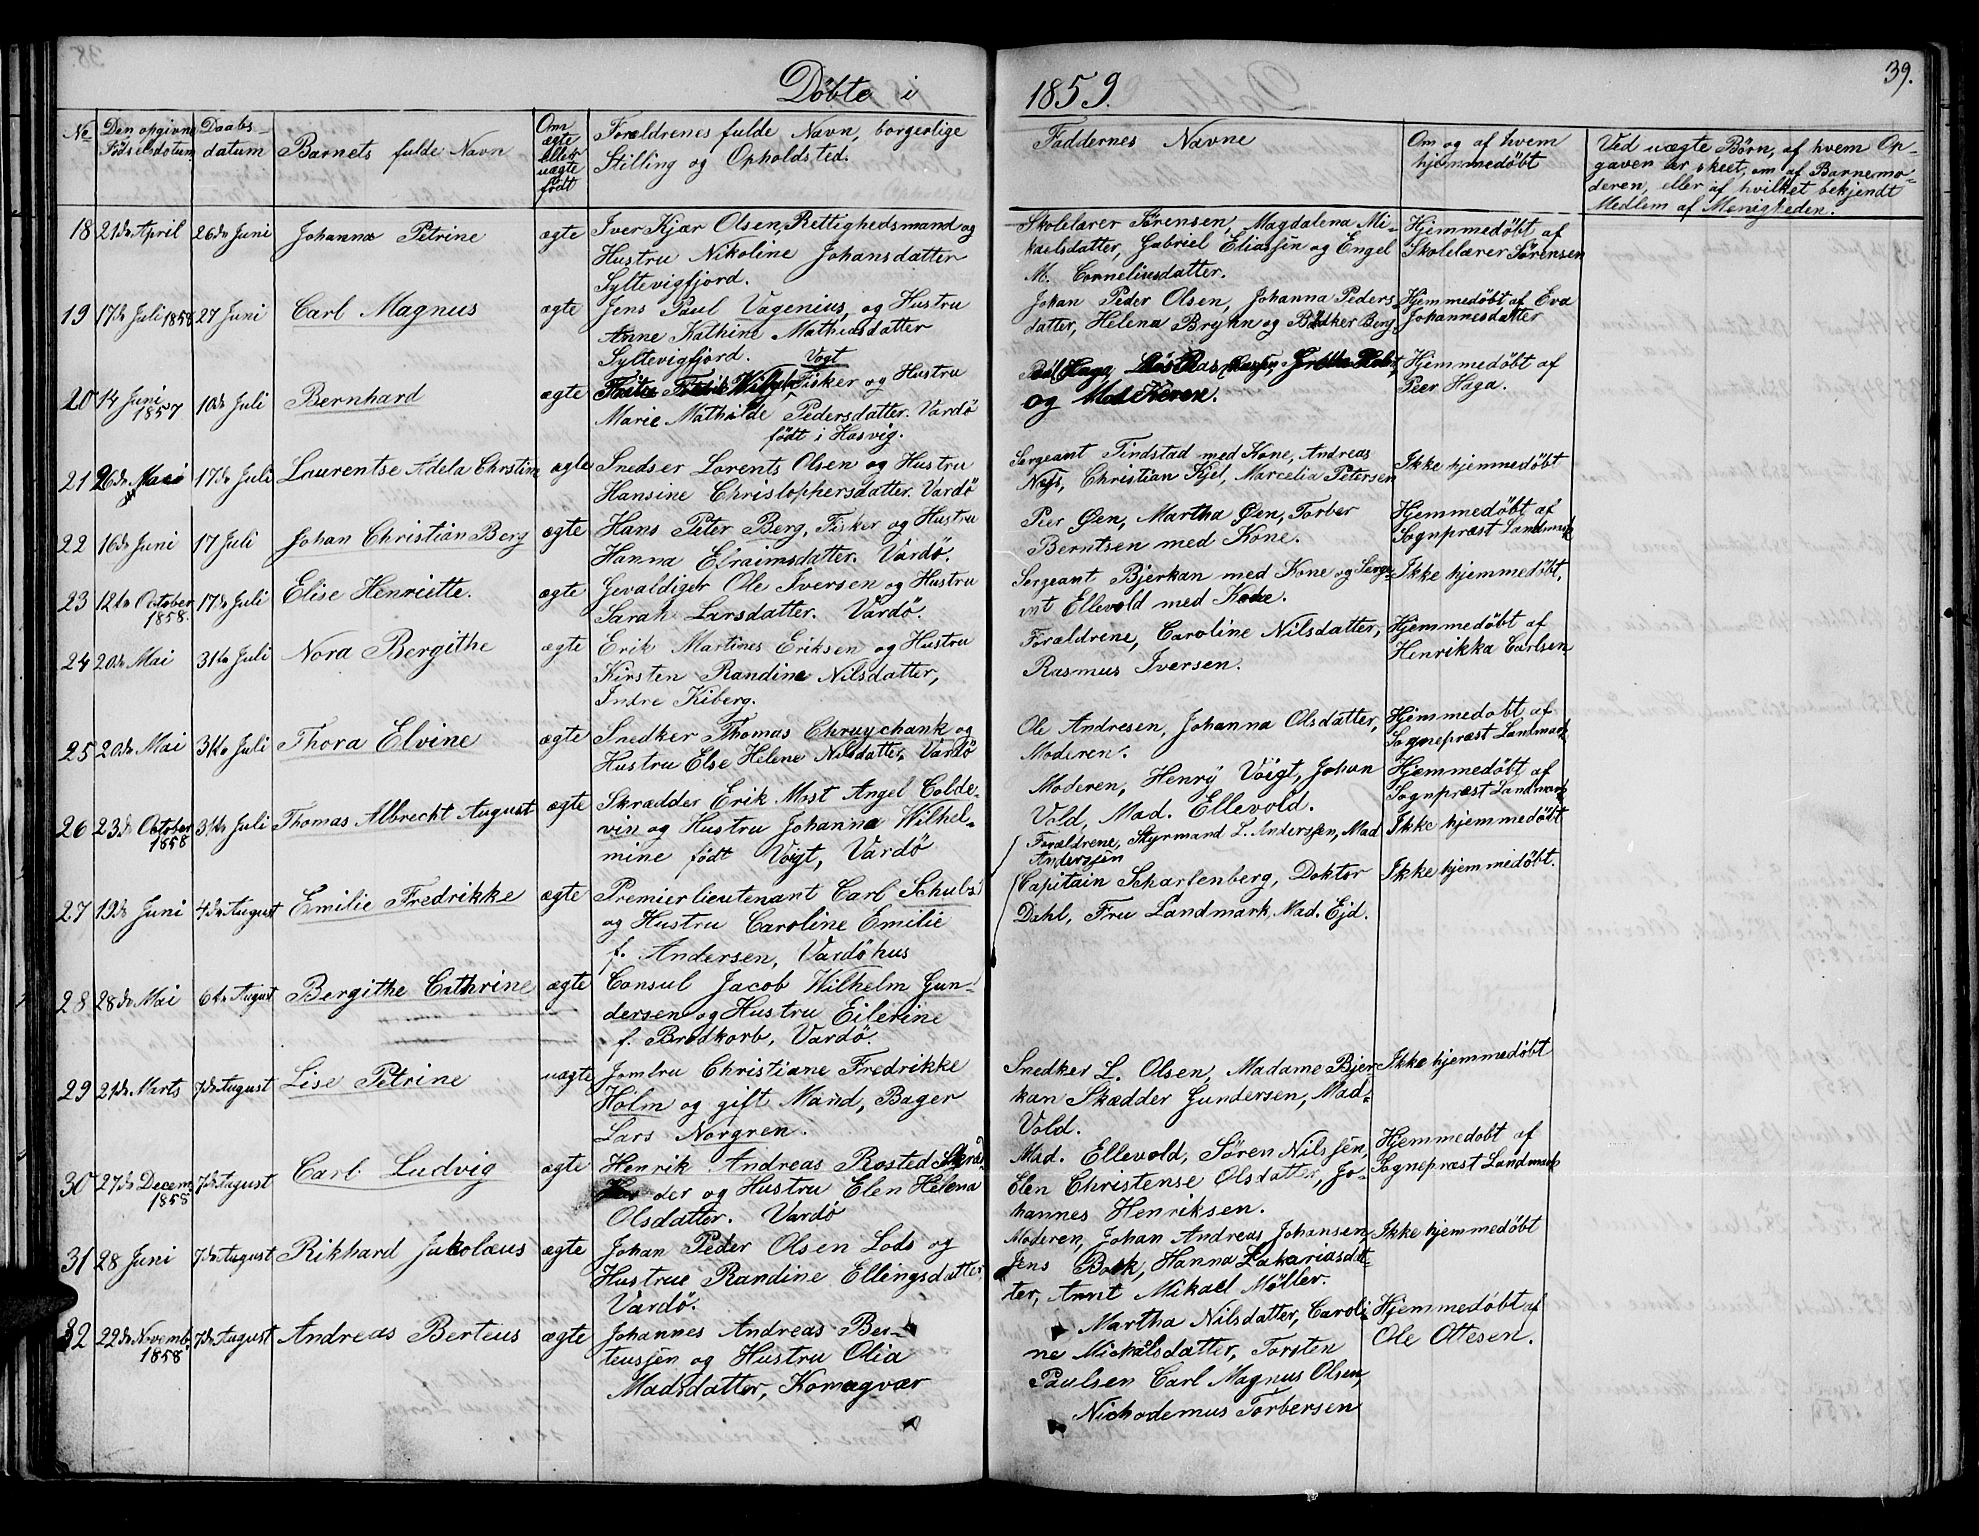 Döbte i 1859.
39.
No
Den opgivne Födselsdatum
Daabs-datum
Barnets fulde Navn
Om ægte eller uægte födt
Forældrenes fulde Navn, borgerlige
Stilling og Opholdsted.
Faddernes Navne
Om og af hvem
hjemmedöbt
Ved uægte Börn, af hvem Op-
gaven er skeet, om af Barnemo-
deren, eller af hvilket bekjendt
Medlem af Menigheden.
18 21de April 26de Juni Johanna Petrine ægte Iver Kjær Olsen, Rettighedsmand og
Hustru Nikoline Johansdatter
Syltevigfjord.
Skolelærer Sörensen, Magdalena Mi-
kaelsdatter, Gabriel Eliassen og Engel
M. Corneliusdatter.
Hjemmedöbt af
Skolelærer Sörensen
19 17de Juli 1858 27 Juni Carl Magnus ægte Jens Paul Vagenius, og Hustru
Anne Kathine Mathiasdatter
Syltevigfjord.
Johan Peder Olsen, Johanna Peders
datter, Helena Bryhn og Bödker Berg.
Hjemmedöbt af Eva
Johannesdatter
20 14 Juni 1857 10de Juli Bernhard ægte Vogt Fisker og Hustru
Marie Mathilde Pedersdatter. Vardö
födt i Hasvig.
og Mad
Hjemmedöbt af
Peer Haga.
21 26de Mai 17de Juli Laurentse Adela Chrstine ægte Snedker Lorents Olsen og Hustru
Hansine Christophersdatter. Vardö
Sergeant Tindstad med Kone, Andreas
Christian Kjel, Marcelia Petersen
Ikke hjemmedöbt
22 16de Juni 17 Juli Johan Christian Berg ægte Hans Peter Berg, Fisker og Hustru
Hanna Efraimsdatter. Vardö.
Peer Öen, Martha Öen, Torber
Berntsen med Kone.
Hjemmedöbt af
Sognpræst Landmark
23 12te October 1858. 17de Juli Elise Henriette. ægte Gevaldiger Ole Iversen og Hustru
Sarah Larsdatter. Vardö.
Sergeant Bjerkan med Kone og Serge-
ant Ellevold med Kone.
Ikke hjemmedöbt,
24 20de Mai 31te Juli Nora Bergithe ægte Erik Martines Eriksen og Hustru
Kirsten Randine Nilsdatter,
Indre Kiberg.
Forældrene, Caroline Nilsdatter,
Rasmus Iversen.
Hjemmedöbt af
Henrikka Carlsen
25 20de Mai 31te Juli Thora Elvine ægte Snedker Thomas Chruychank og
Hustru Else Helene Nilsdatter, Vardö
Ole Andresen, Johanna Olsdatter,
Moderen.
Hjemmedöbt af
Sognepræst Landmark
26 23de October 1858 31te Juli Thomas Albrecht August ægte Skrædder Erik Must Angel Colde-
vin og Hustru Johanna Wilhel-
mine födt Voigt, Vardö
Moderen, Henry Voigt, Johan
Vold, Mad. Ellevold.
Hjemmedöbt af
Sognpræst Landmark
Forældrene, Styrmand L. Anderssen, Mad
Anderssen
Ikke hjemmedöbt
27 19de Juni 4de August Emilie Fredrikke ægte Premierlieutenant Carl Schulz
og Hustru Caroline Emilie
f. Andersen, Vardöhus
Capitain Scharlenberg, Doktor
Dahl, Fru Landmark, Mad. Ejd.
Ikke hjemmedöbt.
28 28de Mai 6te August Bergithe Cathrine ægte Consul Jacob Wilhelm Gun-
dersen og Hustru Eilerine
f. Brodkorb, Vardö.
29 21de Marts 7de August Lise Petrine uægte Jomfru Christiane Fredrikke
Holm og gift Mand, Bager
Lars Norgren.
Snedker L. Olsen, Madame Bjer-
kan Skædder Gundersen, Mad.
Vold.
Ikke hjemmedöbt
30 27de Decem 1858 7de August Carl Ludvig ægte Henrik Andreas Rosted Skræ-
der og Hustru Elen Helena
Olsdatter. Vardö
Mad. Ellevold, Sören Nilssen,
Elen Christense Olsdatter, Jo-
hannes Henriksen.
Hjemmedöbt af
Sognepræst Landmark
31 28 Juni 7de August Rikhard Jakolæus ægte Johan Peder Olsen Lods og
Hustrue Randine Ellingsdatter
Vardö.
Moderen, Johan Andreas Johansen
Jens Bock, Hanna Zakariasdat-
ter, Annt Mikael Möller.
Ikke hjemmedöbt
32 22de Novemb. 1858 7de August Andreas Berteus ægte Johannes Andreas Ber-
teussen og Hustru Olia
Madsdatter, Komagvær
Martha Nilsdatter, Caroli-
ne Michalsdatter, Torsten
Paulsen Carl Magnus Olsen,
Nichodemus Torbersen
Hjemmedöbt af
Ole Ottesen.